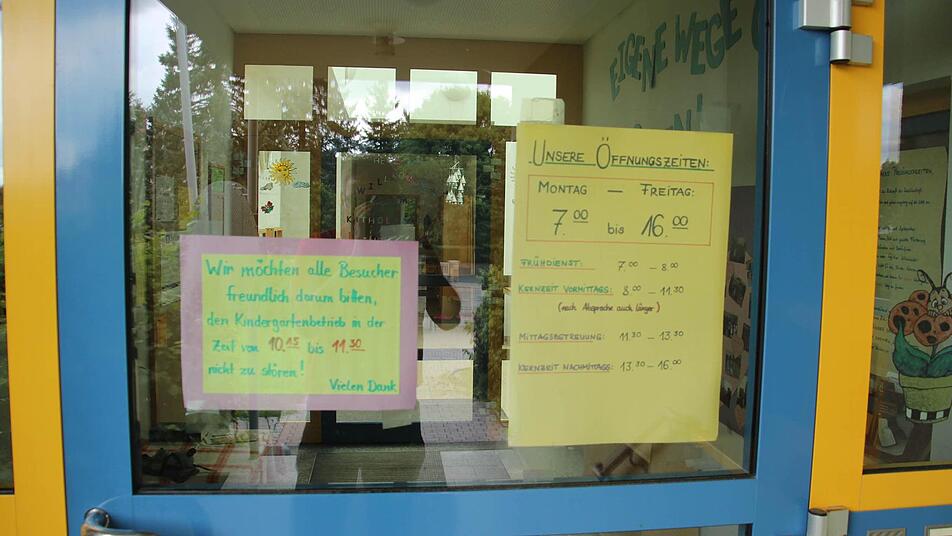 EIGENE WEGE
Wir möchten alle Besucher
freundlich darum bitten,
den Kindergartenbetrieb in der
Zeit von 10.15 bis 11.30
nicht zu stören!
Vielen Dank
UNSERE ÖFFNUNGSZEITEN:
MONTAG — FREITAG:
7.00 bis 16.00
FRÜHDIENST: 7.00 – 8.00
KERNZEIT VORMITTAGS: 8.00 – 11.30
(nach Absprache auch länger)
MITTAGSBETREUUNG: 11.30 – 13.30
KERNZEIT NACHMITTAGS: 13.30 – 16.00